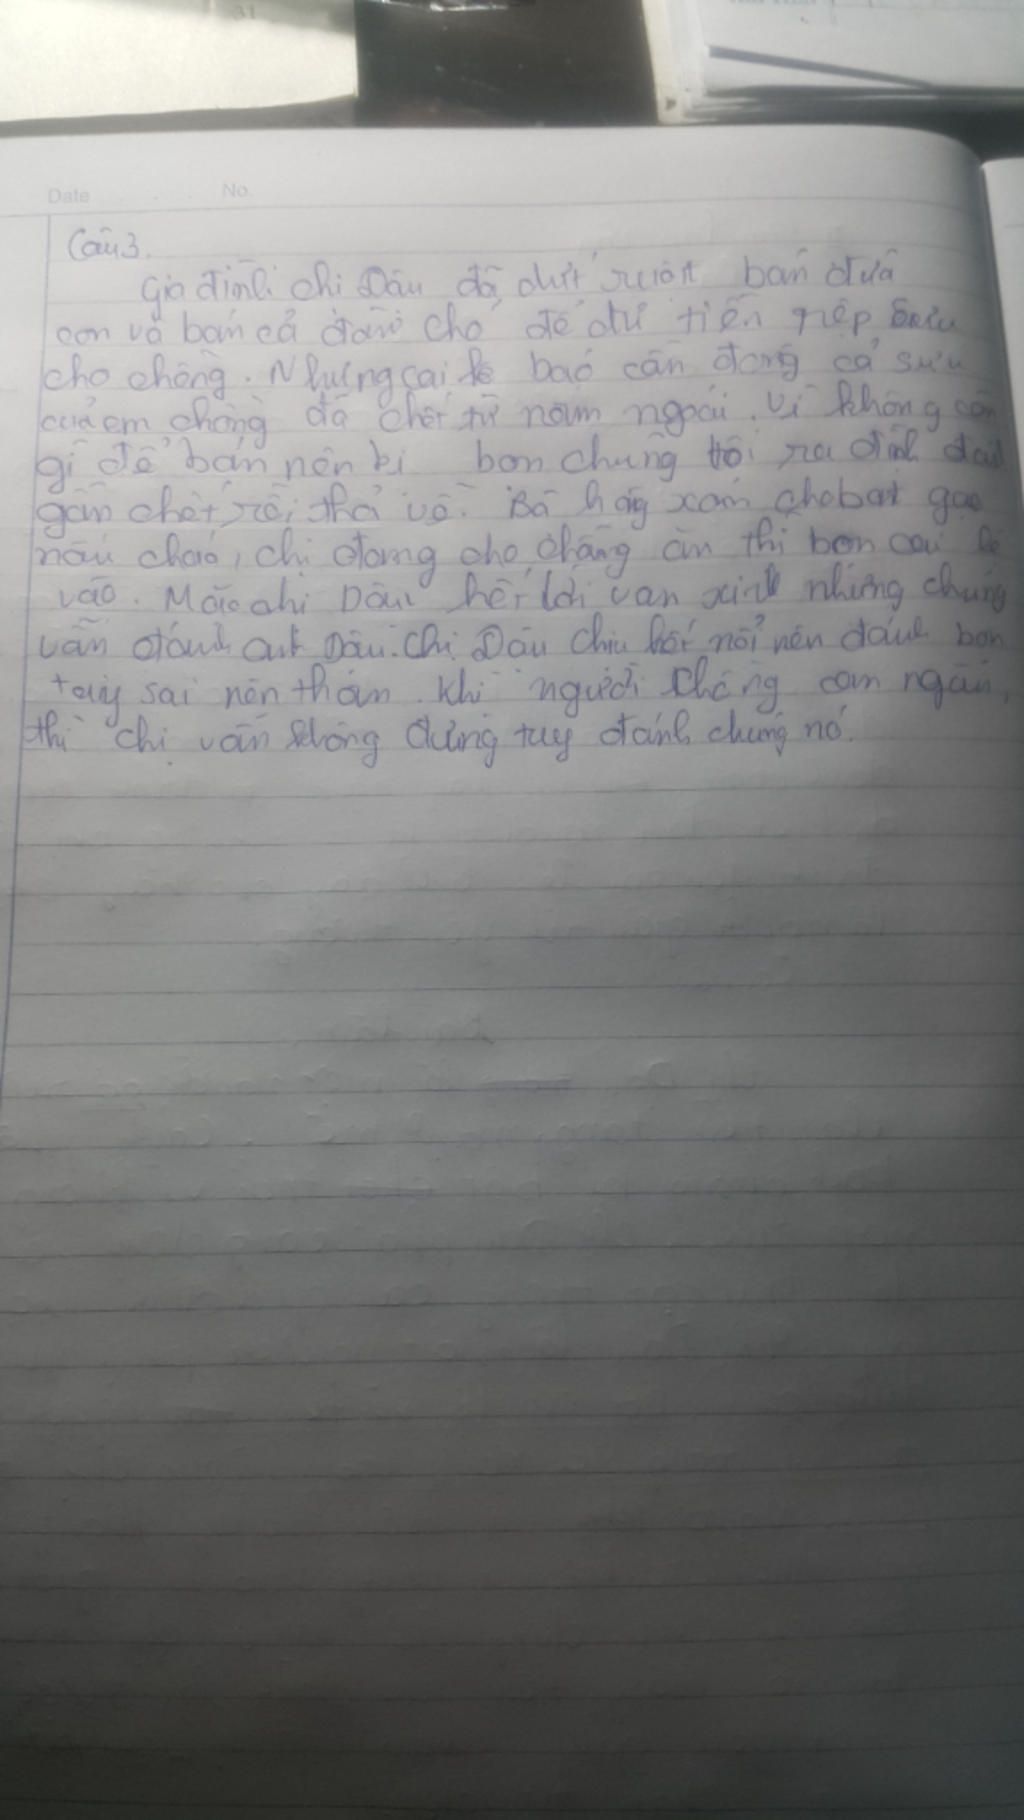 31
Date No.
Câu 3.
Gia đình chị Dậu đã dứt ruột bán đứa
con và bán cả đàn chó để đủ tiền nộp sưu
cho chồng. Nhưng cai lệ bảo cần đóng cả sưu
của em chồng đã chết từ năm ngoái. Vì không còn
gì để bán nên bị bọn chúng trói ra đình
gần chết rồi thả về. Bà hàng xóm cho bát gạo
nấu cháo, chị đang cho chồng ăn thì bọn cai lệ
vào. Mặc chị Dậu hết lời van xinh nhưng chúng
vẫn đánh anh Dậu. Chị Dậu chịu hết nổi nên đánh bọn
tay sai nên thân. Khi người chồng can ngăn,
thì chị vẫn không dừng tay đánh chúng nó.